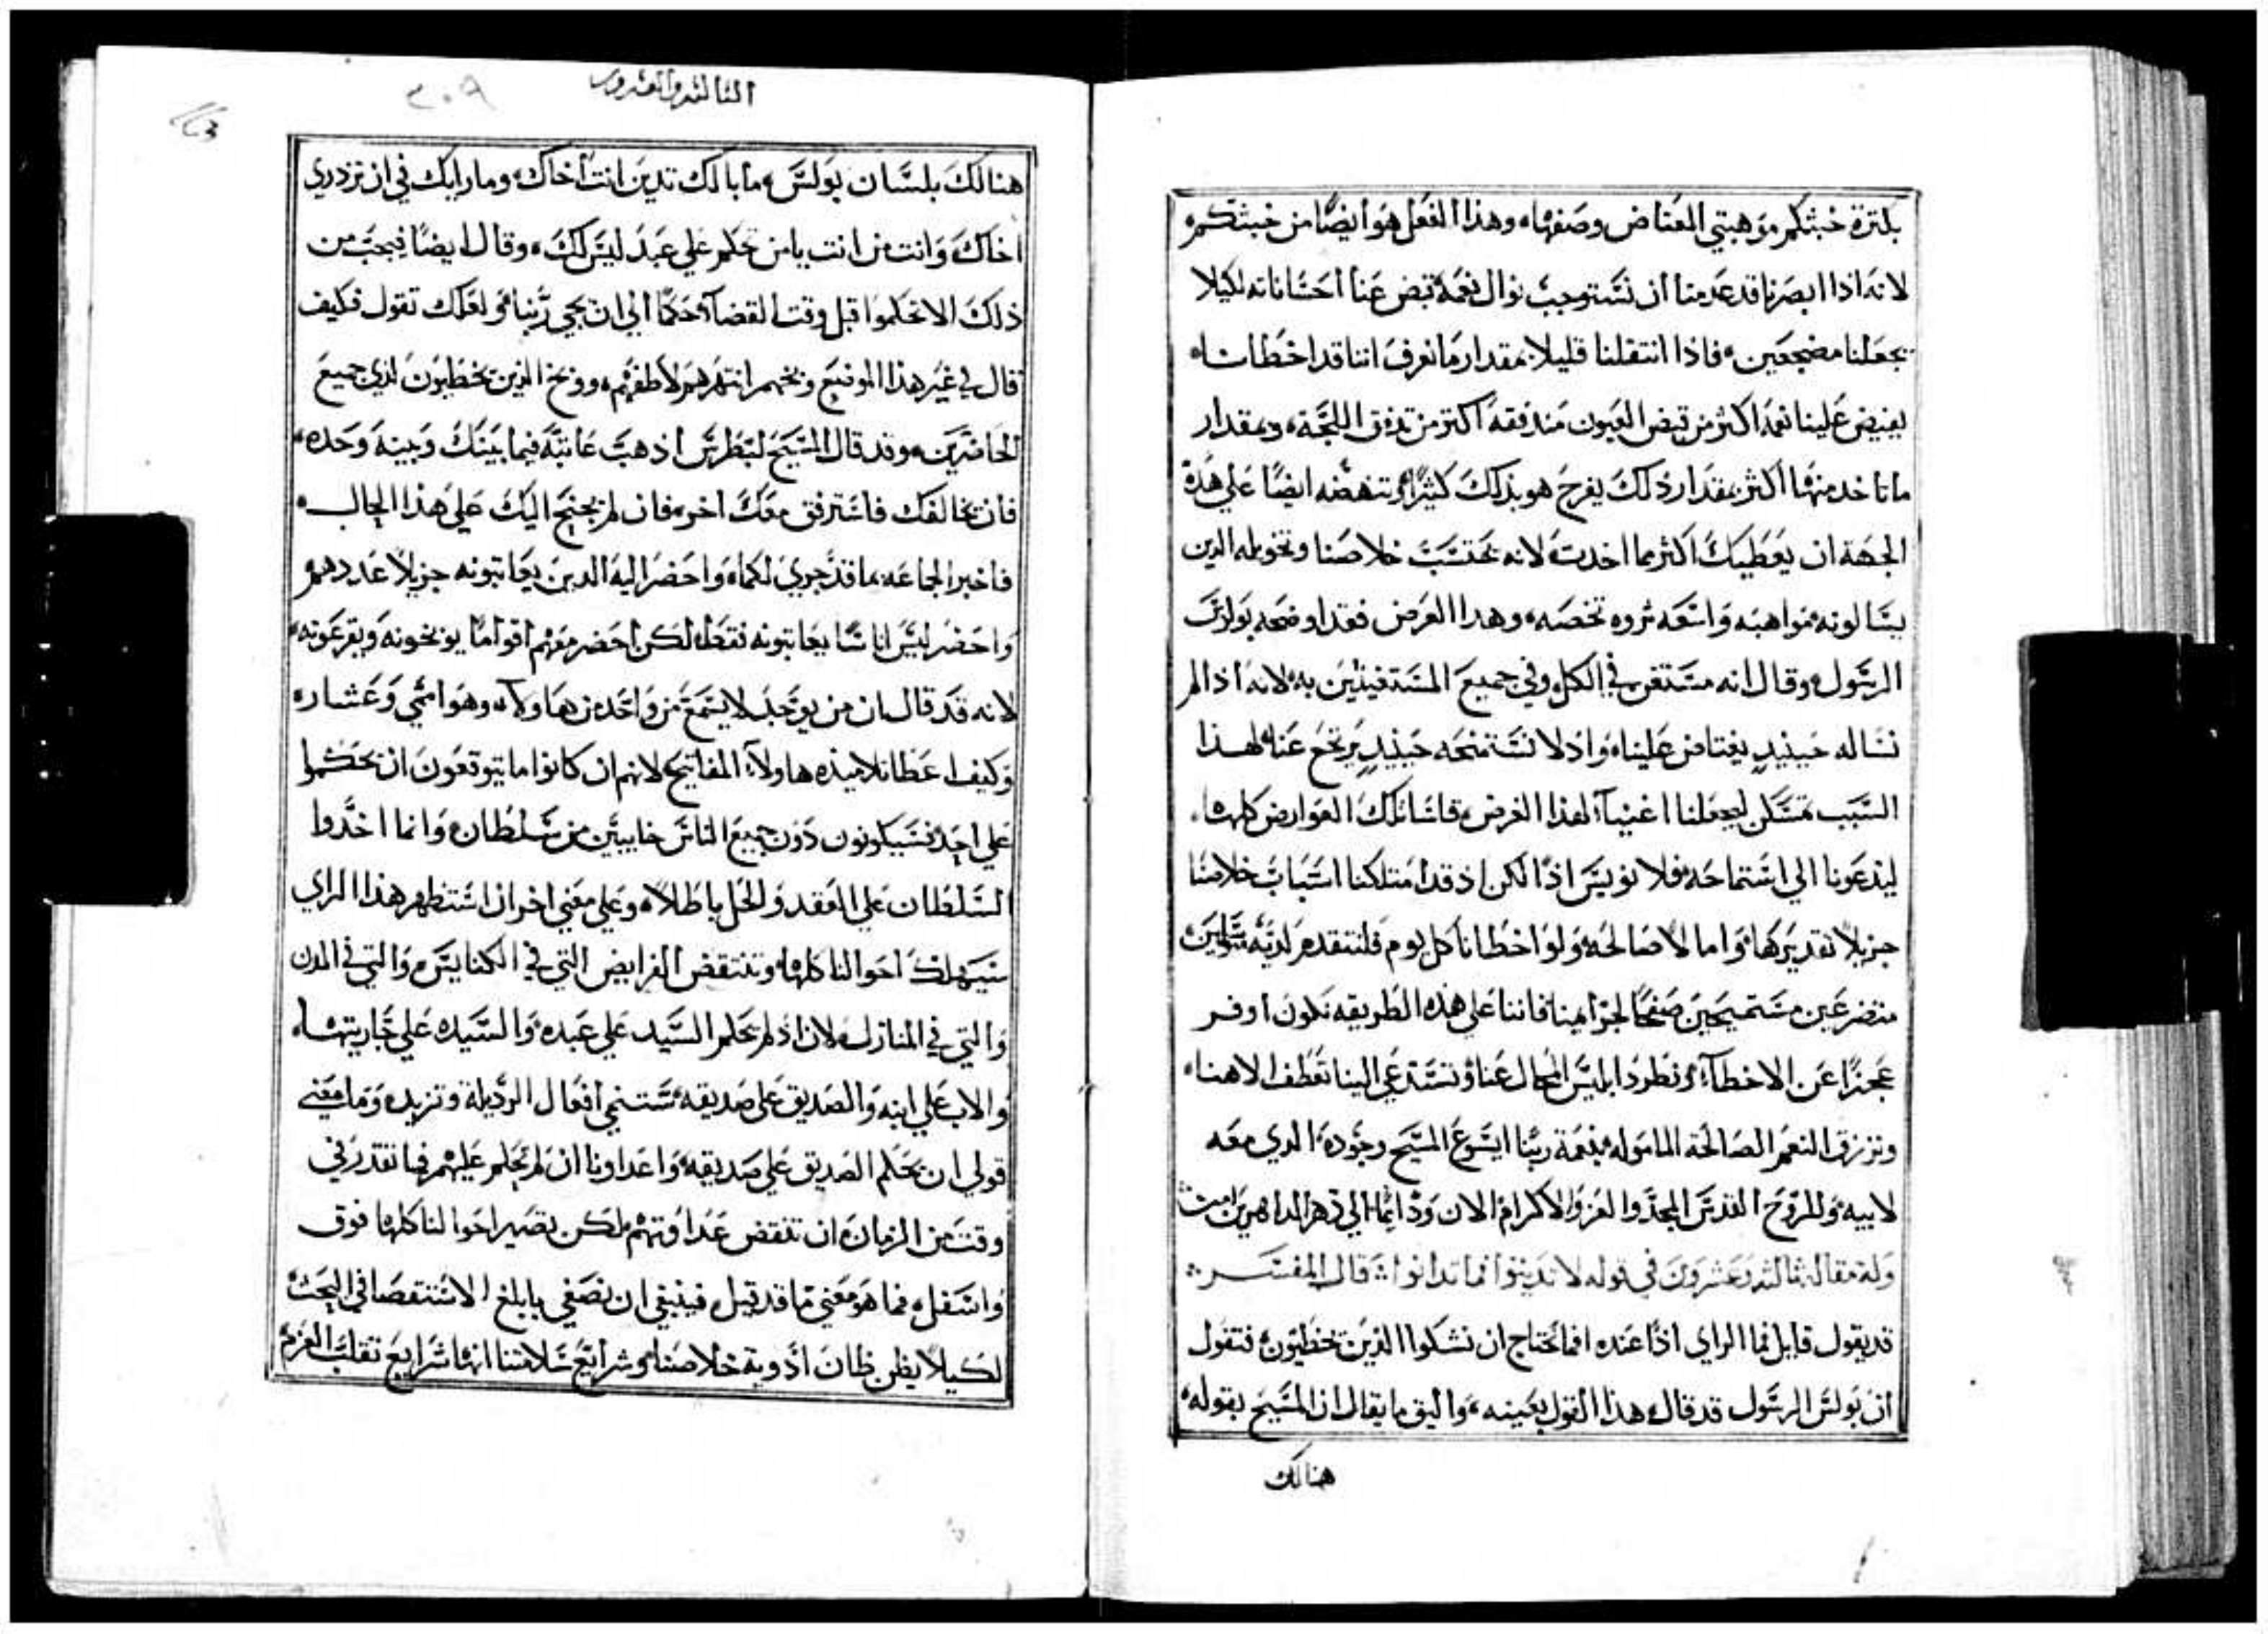 بكثرة خبثكم موهبتي المعتاض وصفها، وهذا الفعل هو ايضًا من خبثكم
لانه اذا ابصرنا قد عدمنا ان نستوجب نوال نعمة قبض عنا احساناته لكيلا
يجعلنا مضجعين، فاذا انتقلنا قليلا بمقدار ما نعرف اننا قد اخطانا،
يفيض علينا نعمه اكثر من فيض العيون مندفقة اكتر من تدفق اللجة، وبمقدار
ما تاخد منها اكثر بمقدار ذلك يفرح هو بذلك كثيرًا، وتنهضه ايضًا علي هذه
الجهة ان يعطيك اكثر مما اخدت، لانه يحتسب خلاصنا وتخويله الدين
يسالونه مواهبه واسعه ثروه تخصه، وهدا الغرض فقد اوضحه بولس
الرسول، وقال انه مستغن في الكل وفي جميع المستغيثين به، لانه اذا لم
نساله حينيدٍ يغتاض علينا، واذ لا نستمنحه حينيدٍ يرتجع عنا، لهذا
السبب تمسكن ليجعلنا اغنيآ، لهذا الغرض قاسا تلك العوارض كلها،
ليدعونا الي استماحه، فلا نويس اذًا لكن اذ قد امتلكنا اسباب خلاصنا
جزيلاً تقديركها، واما لا صالحه، ولو اخطانا كل يوم فلنتقدم لديه متوسلين
متضرعين مستميحين صفحًا لجرايمنا فاننا علي هذه الطريقه نكون اوفر
عجزًا عن الاخطآ، ونطرد ابليس المحال عنا، ونستدعي الينا تعطف الاهنا،
ونرزق النعم الصالحة المامولة بنعمة ربنا ايسوع المسيح وجوده، الدي معه
لابيه، وللروح القدس المجد والعز والاكرام الان ودايمًا الي دهر الداهرين امين
وله مقالة ثالثه وعشرون في قوله لا تدينوا فما تدانوا، قال المفسر
قد يقول قايل فما الراي اذًا عنده افما نحتاج ان نشكوا الذين يخطيون، فتقول
ان بولس الرسول قد قال هذا القول بعينه، واليق ما يقال ان المسيح بقوله،
هنالك
الثالثه والعشرون
٣٠٩
هنالك بلسان بولس، ما بالك تدين انت اخاك، وما رايك في ان تزدري
اخاك، وانت من انت يا من تحكم علي عبد ليس لك، وقال ايضًا فيجب من
ذلك الا تحكموا قبل وقت القضآ حكمًا الي ان يجي ربنا، ولعلك تقول فكيف
قال في غير هذا الموضع وبخهم انتهرهم لاطفهم، ووبخ الذين يخطيون لدي جميع
الحاضرين، وقد قال المسيح لبطرس اذهب عاتبه فيما بينك وبينه وحده،
فان خالفك فاسترفق معك اخر، فان لم يجنح اليك علي هذا الحال،
فاخبر الجماعه بما قد جري لكما، واحضر اليه الدين يعاتبونه جزيلاً عددهم
واحضر ليس اناسًا يعاتبونه فقط، لكن احضر معهم اقوامًا يوبخونه ويقرعونه،
لانه قد قال ان من يوجد لا يسمع من واحد من هاولآ، وهو اممي وعشار،
وكيف اعطا تلاميذه هاولآء المفاتيح لانهم ان كانوا ما يتوقعون ان يحكموا
علي احد، فسيكونون دون جميع الناس خايبين من سلطان، وانما اخذوا
السلطان علي العقد والحل باطلاً، وعلي معني اخر ان استظهر هذا الراي
سيهلك احوالنا كلها، وتنتقض الفرايض التي في الكنايس، والتي في المدن
والتي في المنازل، لان اذ لم يحكم السيد علي عبده، والسيده علي جاريتها،
والاب علي ابنه، والصديق علي صديقه، ستنمي افعال الرذيلة وتزيد، وما معني
قولي ان يحكم الصديق علي صديقه، واعداونا ان لم يحكم عليهم فما نقتدر في
وقت من الزمان، ان تنقض عداوتهم، لكن تصير احوالنا كلها فوق
واسفل، فما هو معني ما قد قيل، فينبغي ان نصغي بابلغ الاستقصا في البحث
لكيلا يظن ظان ادوية خلاصنا، وشرايع سلامتنا انها شرايع تقلب العزم